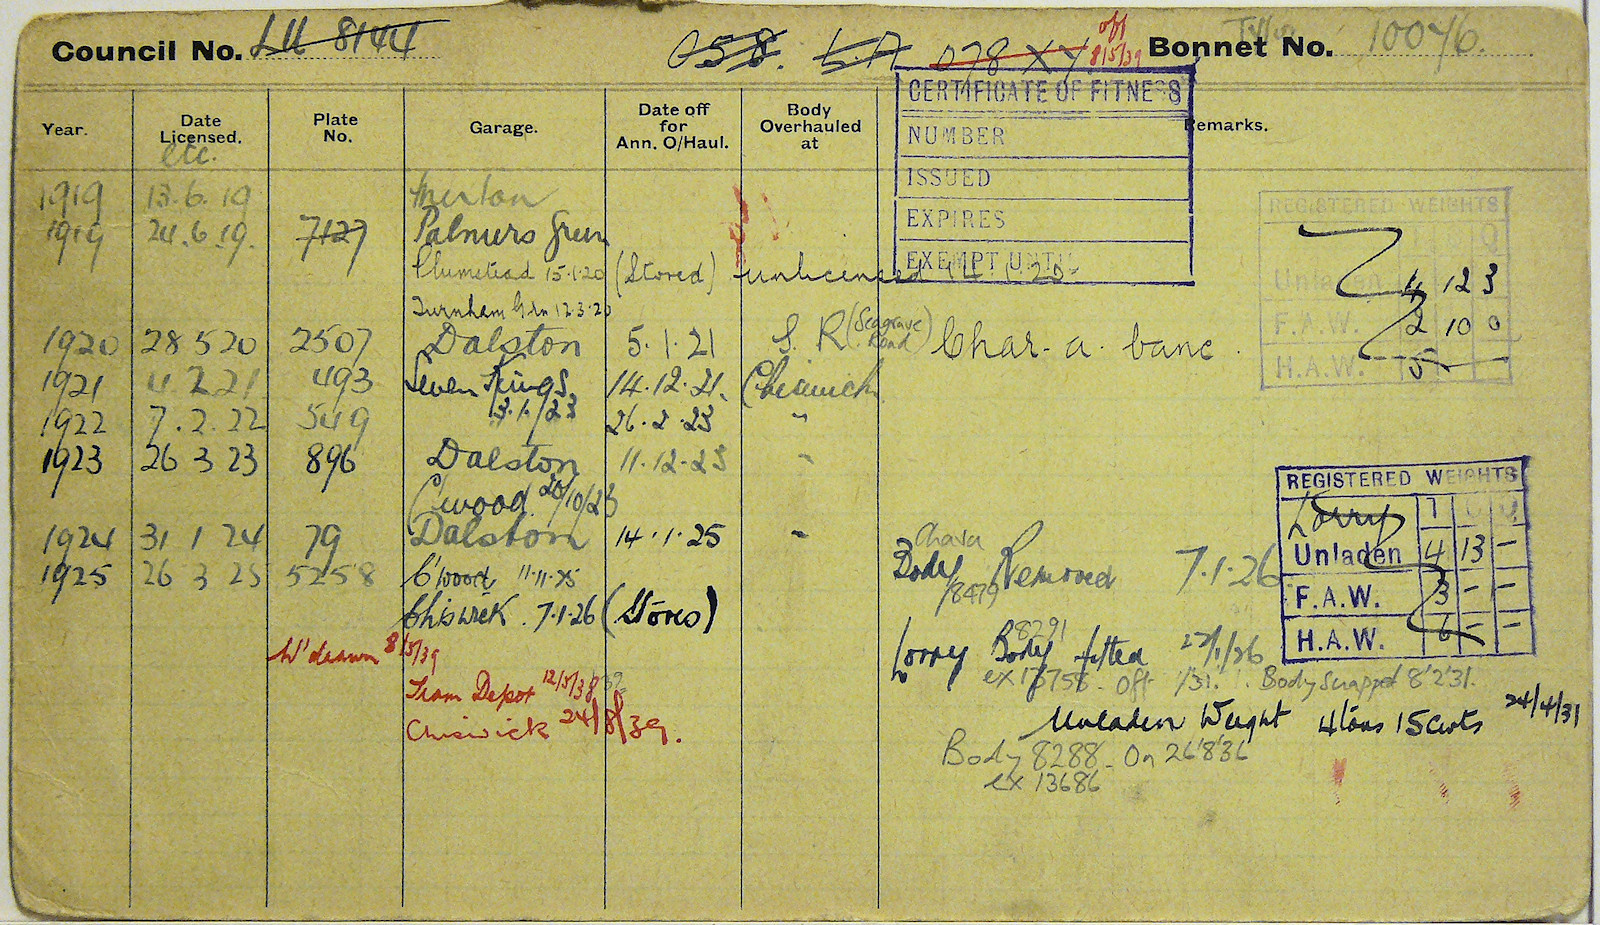 Council No. LU 8144 058. LA 078 XY off 8/5/39 Bonnet No. 10046.
Year. Date Licensed. etc. Plate No. Garage. Date off for Ann. O/Haul. Body Overhauled at Remarks.
CERTIFICATE OF FITNESS
NUMBER
ISSUED
EXPIRES
EXEMPT UNTIL
1919 13.6.19 Merton
1919 24.6.19. 7127 Palmers Green
Plumstead 15.1.20 (Stored) unlicensed 14 1 20
Turnham Grn 12.3.20
REGISTERED WEIGHTS
Unladen 4 12 3
F.A.W. 2 10 0
H.A.W. 5 —
1920 28 5 20 2507 Dalston 5.1.21 S. R (Seagrave Road) Char-a-banc.
1921 4 2 21 493 Seven Kings 14.12.21. Chiswick
3.1./23
1922 7.2.22 549 26.2.23 "
1923 26 3 23 896 Dalston 11.12.23 "
C'wood 20/10/23
1924 31 1 24 79 Dalston 14.1.25 "
1925 26 3 25 5258 C'wood 11.11.25
Chara
Body Removed 7.1.26
18479
REGISTERED WEIGHTS
Lorry T C Q
Unladen 4 13 –
F.A.W. 3 – –
H.A.W. 6 – –
Chiswick. 7.1.26 (Stores)
Lorry Body 8291 fitted 22/1/26
ex 13758 - Off 1/31. Body Scrapped 8'2'31.
W'drawn 8/5/39
Tram Depot 12/5/38 39
Unladen Weight 4 tons 15 cwts 24/4/31
Chiswick 24/8/39.
Body 8288 - On 26'8'36
ex 13686